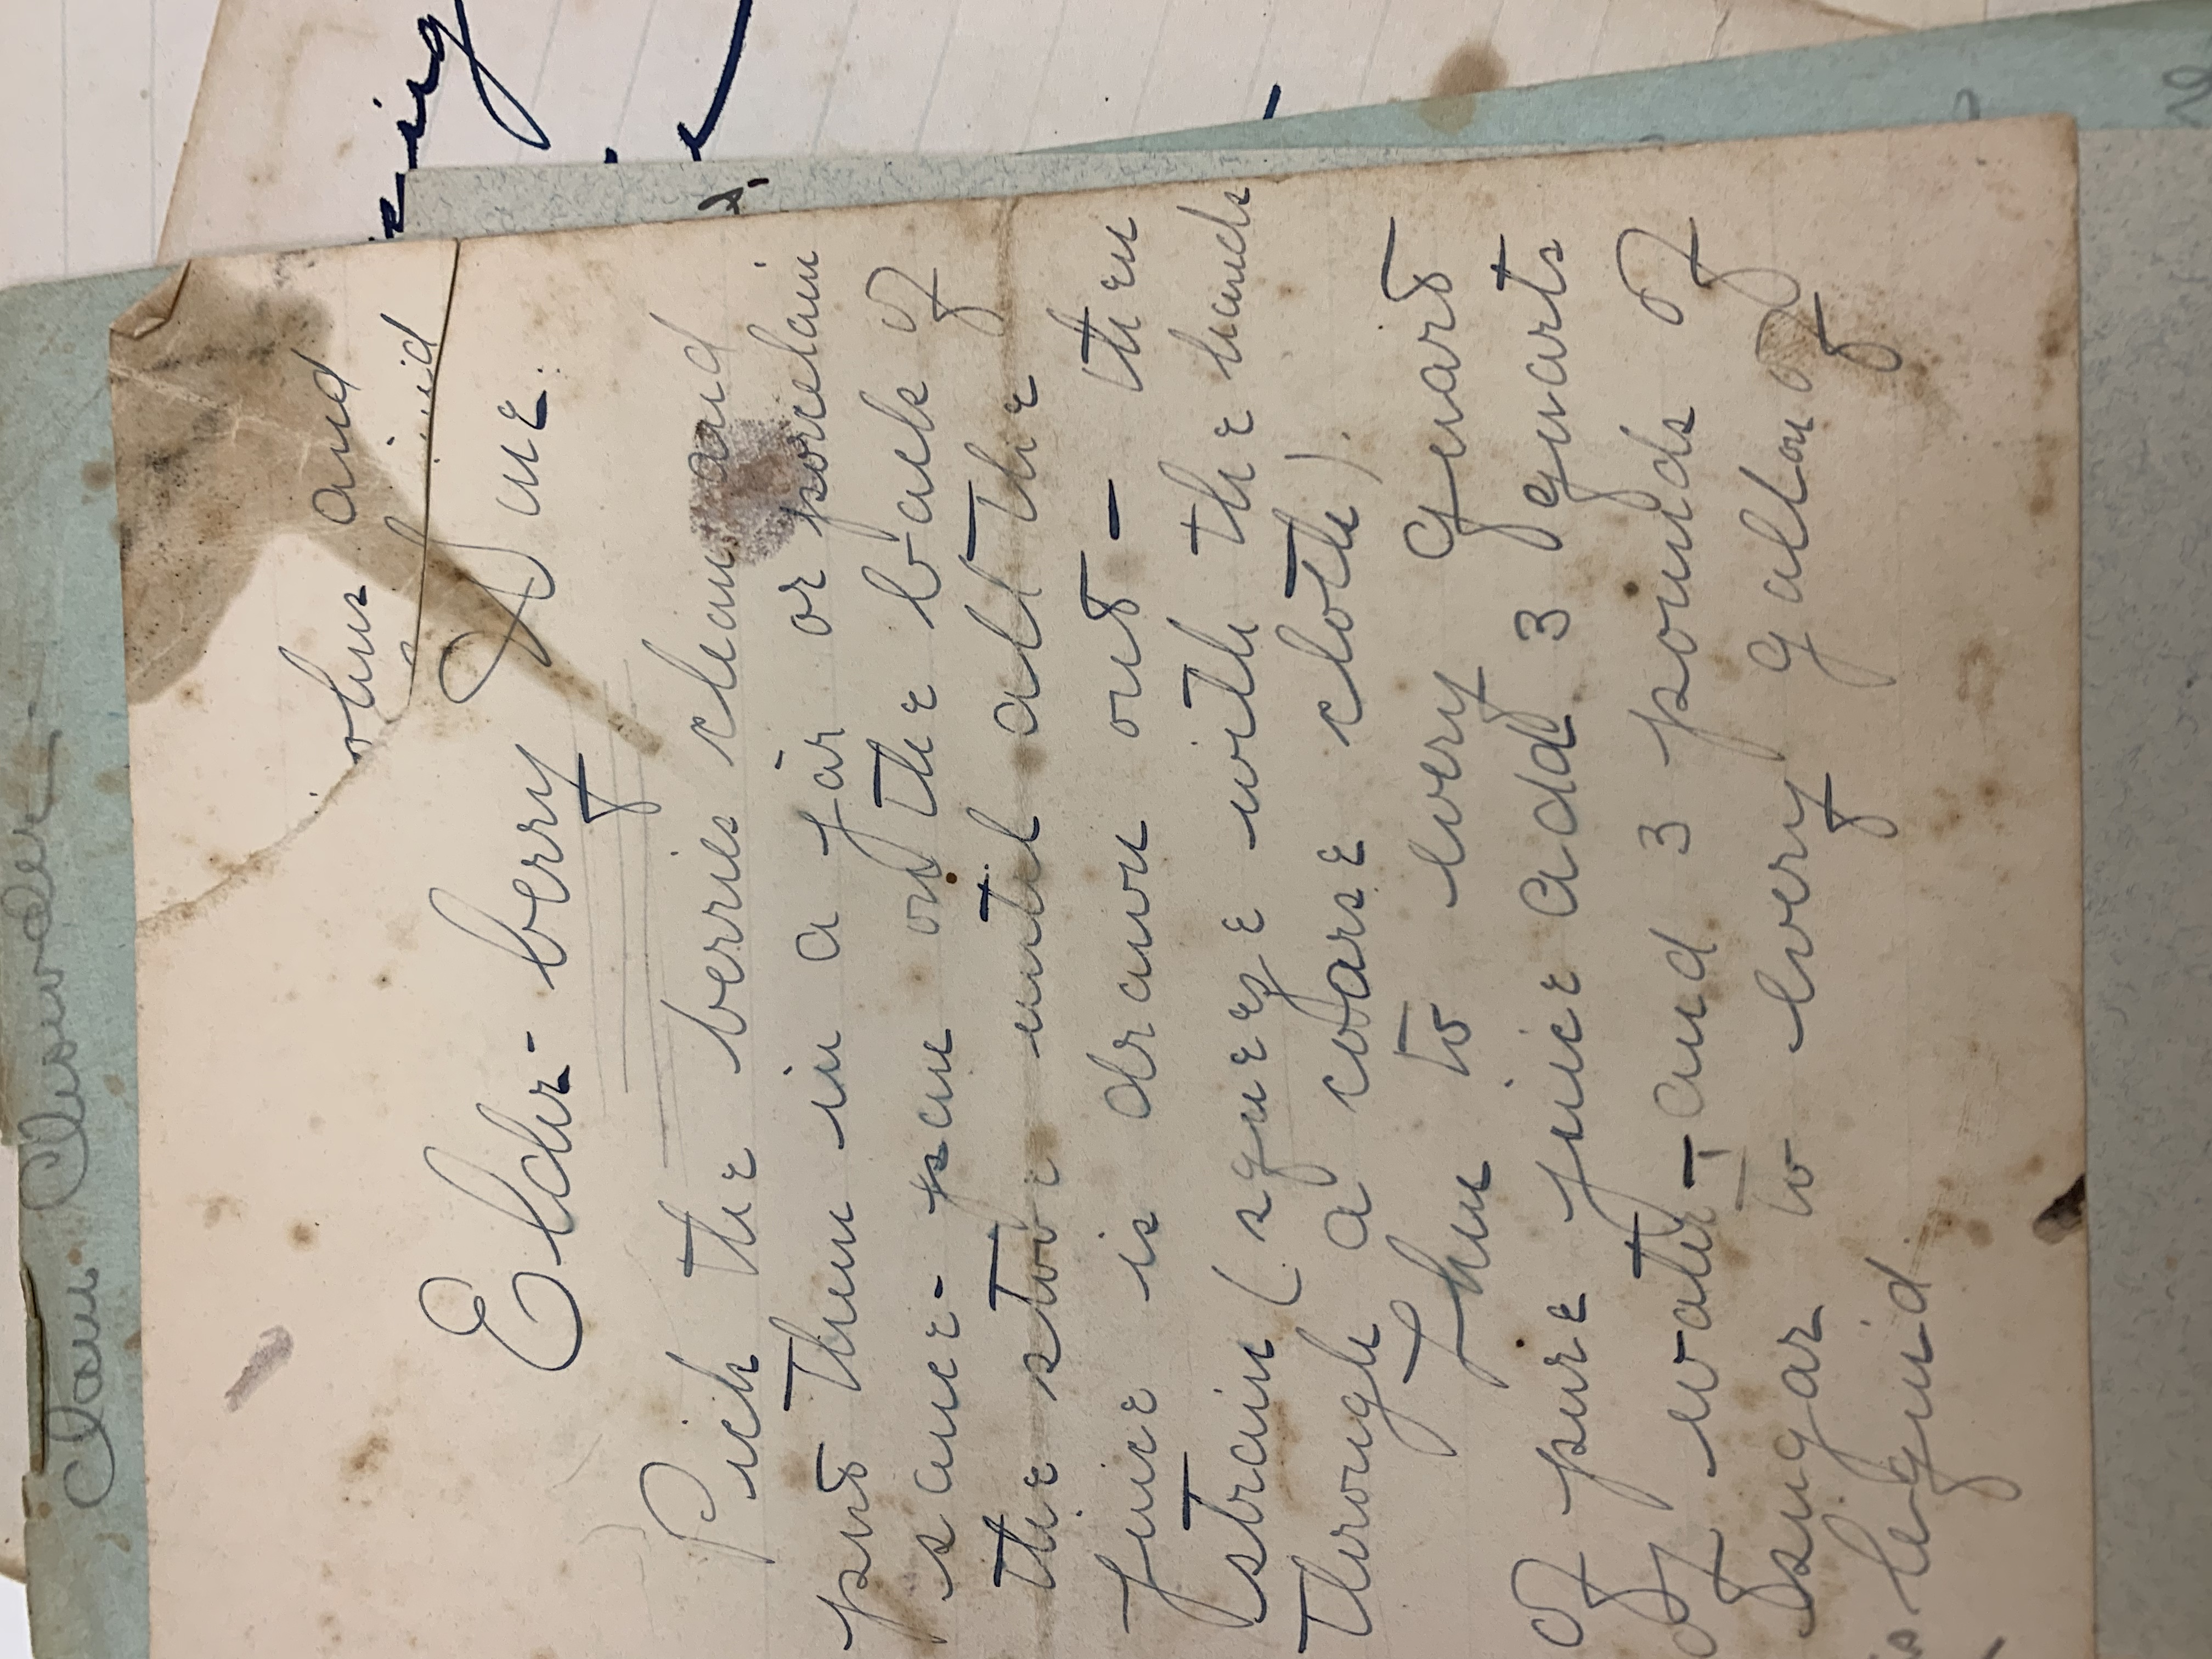 Clam Chowder
and
Elder-berry Wine.
Pick the berries clean, and
put them in a jar or porcelain
sauce-pan on the back of
the stove until all the
juice is drawn out - then
strain (squeeze with the hands
through a coarse cloth).
Then to every quart
of pure juice add 3 quarts
of water - and 3 pounds of
sugar to every gallon of
liquid